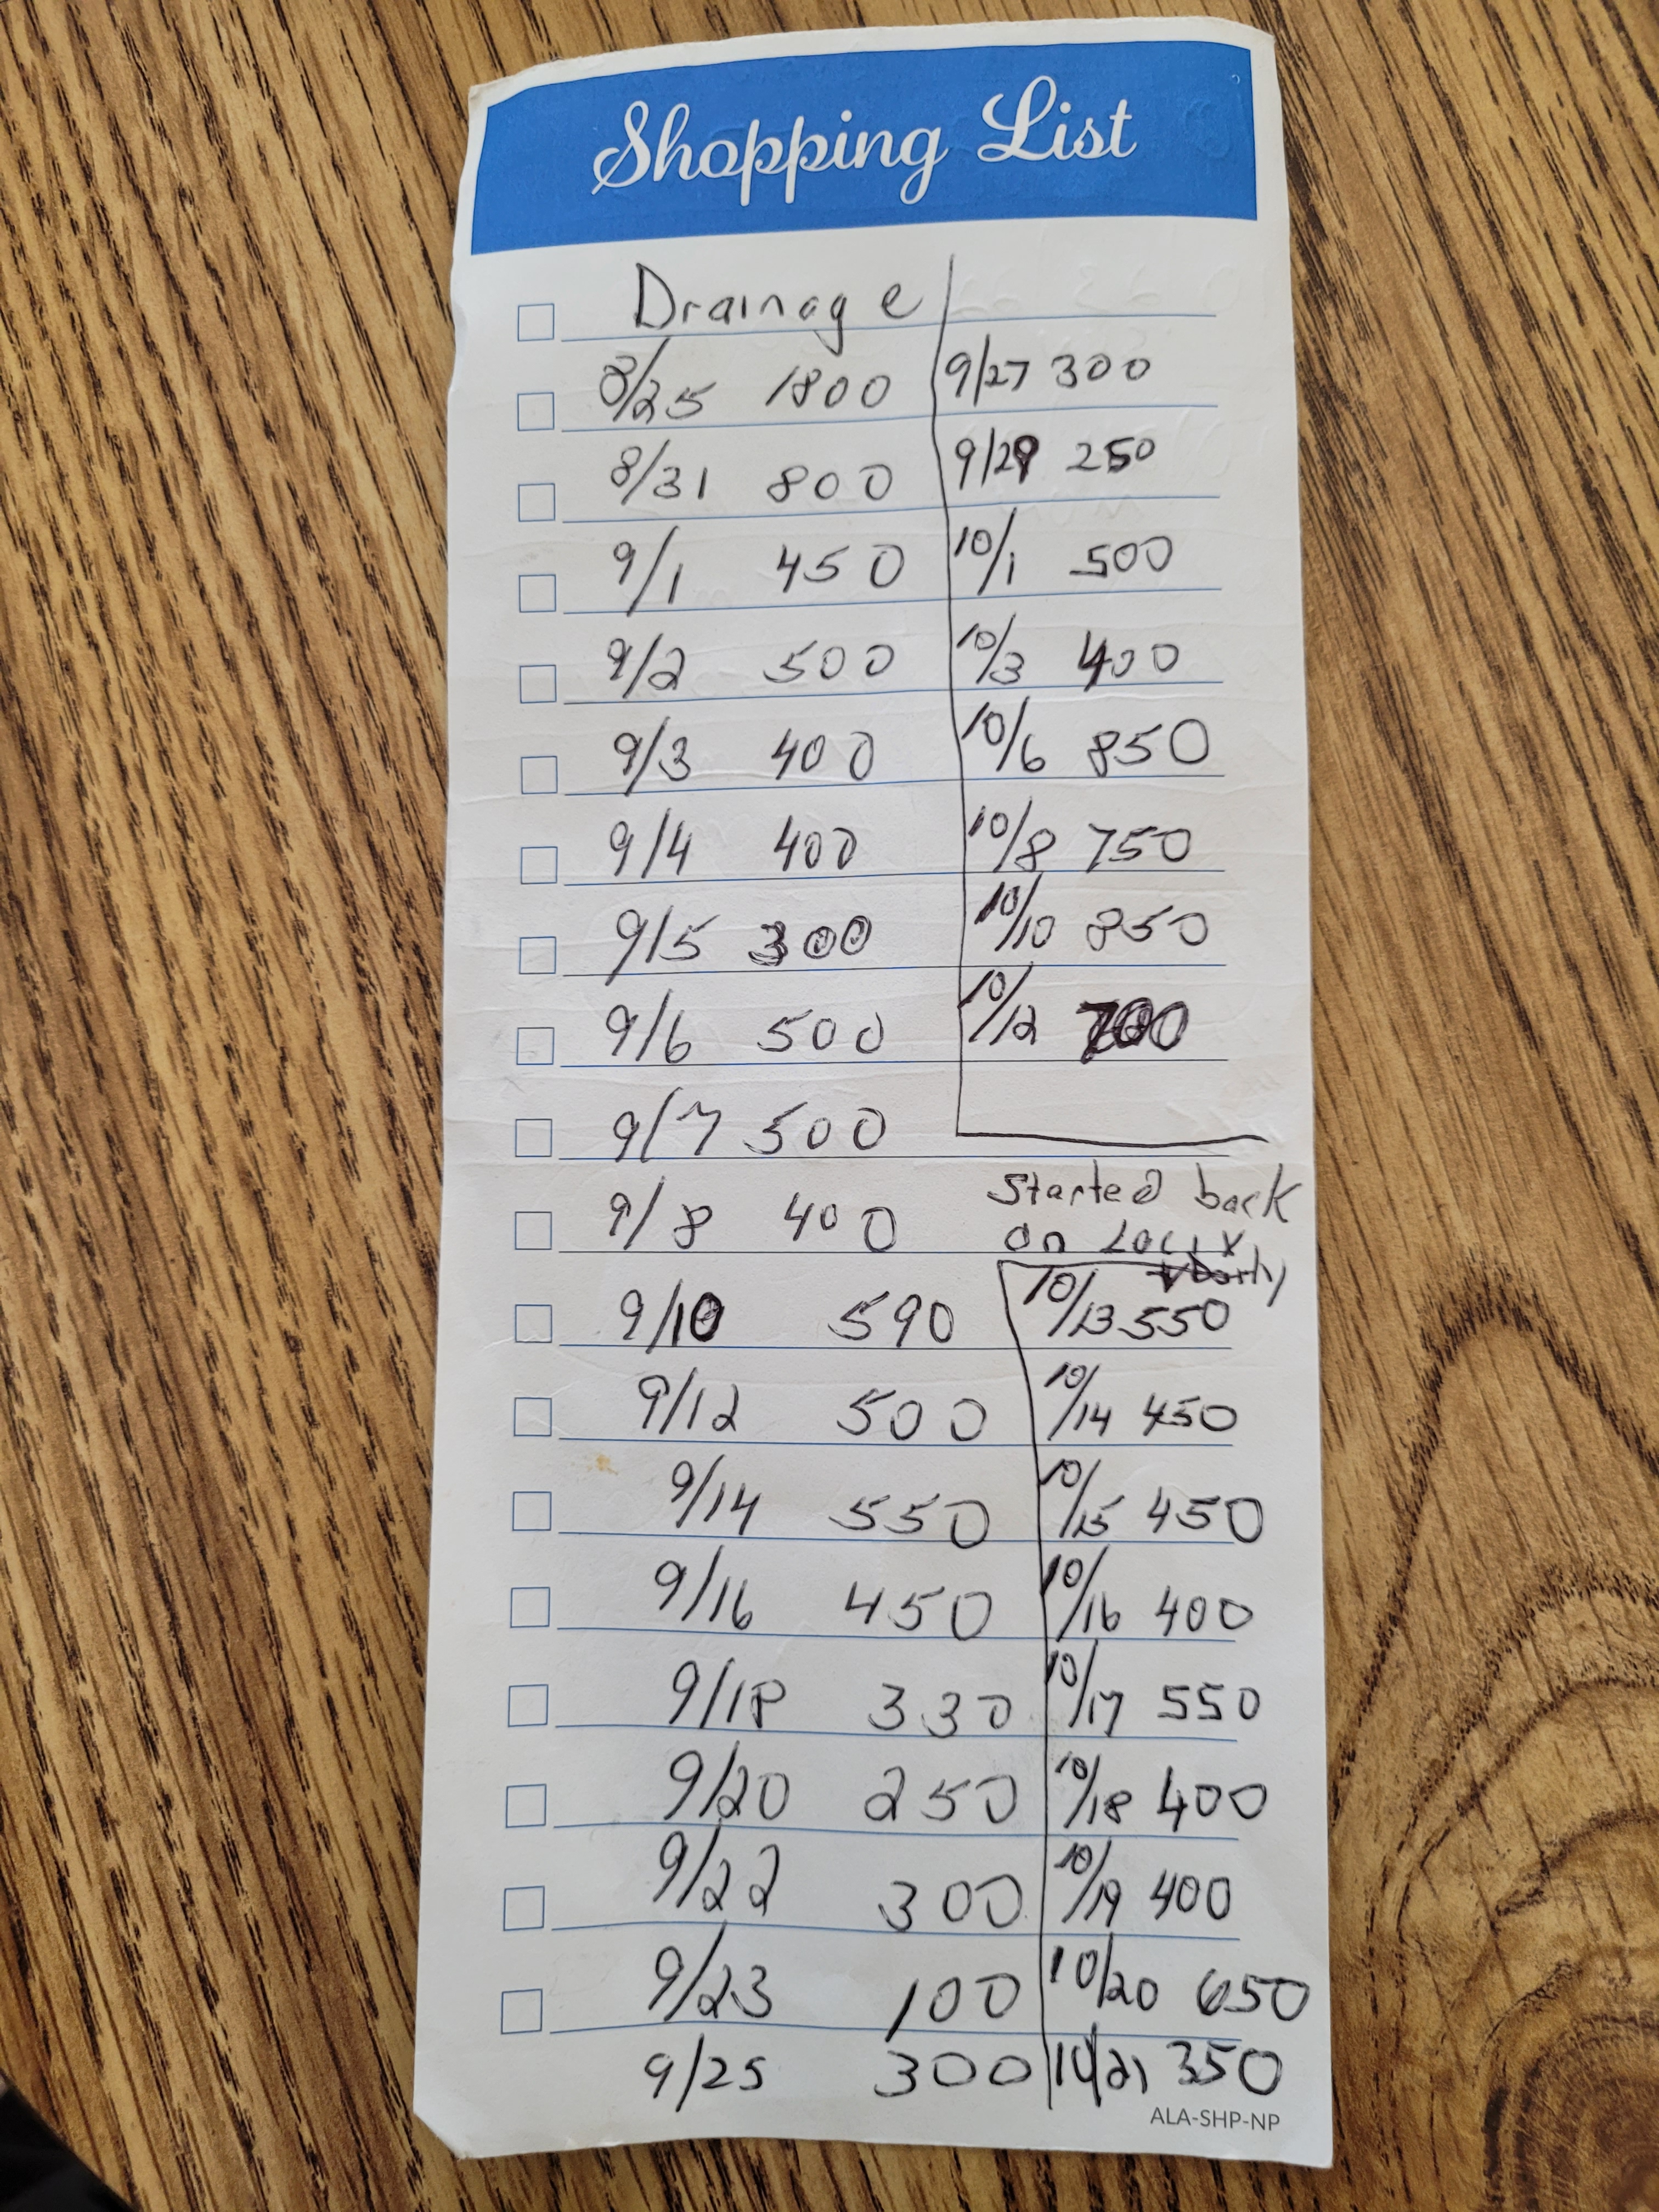 Shopping List
Drainage
8/25 1800
8/31 800
9/1 450
9/2 500
9/3 400
9/4 400
9/5 300
9/6 500
9/7 500
9/8 400
9/10 590
9/12 500
9/14 550
9/16 450
9/18 330
9/20 250
9/22 300
9/23 100
9/25 300
9/27 300
9/29 250
10/1 500
10/3 400
10/6 850
10/8 750
10/10 850
10/12 700
Started back
on
10/13 550
10/14 450
10/15 450
10/16 400
10/17 550
10/18 400
10/19 400
10/20 650
10/21 350
ALA-SHP-NP